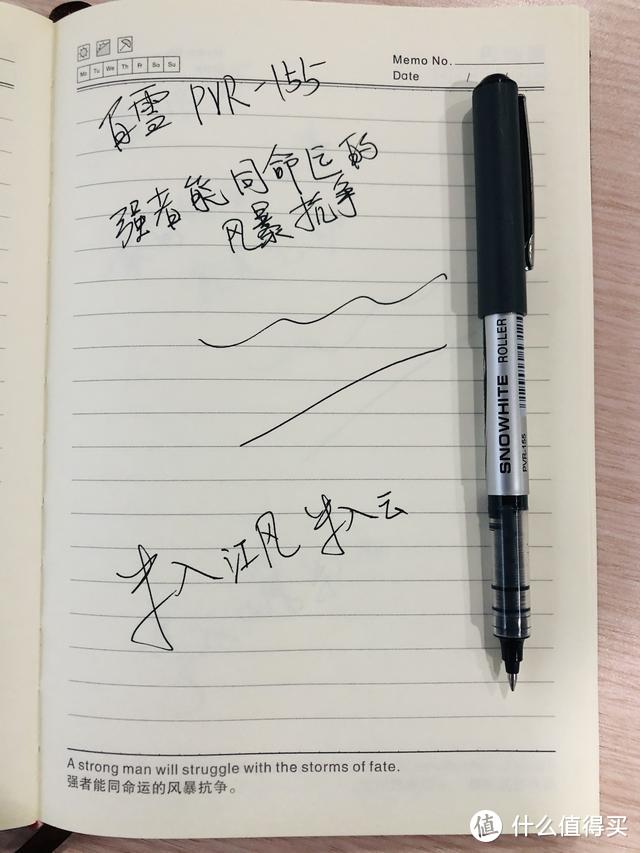 Memo No.
Mo Tu We Th Fr Sa Su
Date / /
白雪 PVR-155
强者能同命运的
风暴抗争
SNOWHITE ROLLER
PVR-155
半入江风半入云
A strong man will struggle with the storms of fate.
强者能同命运的风暴抗争。
值 什么值得买